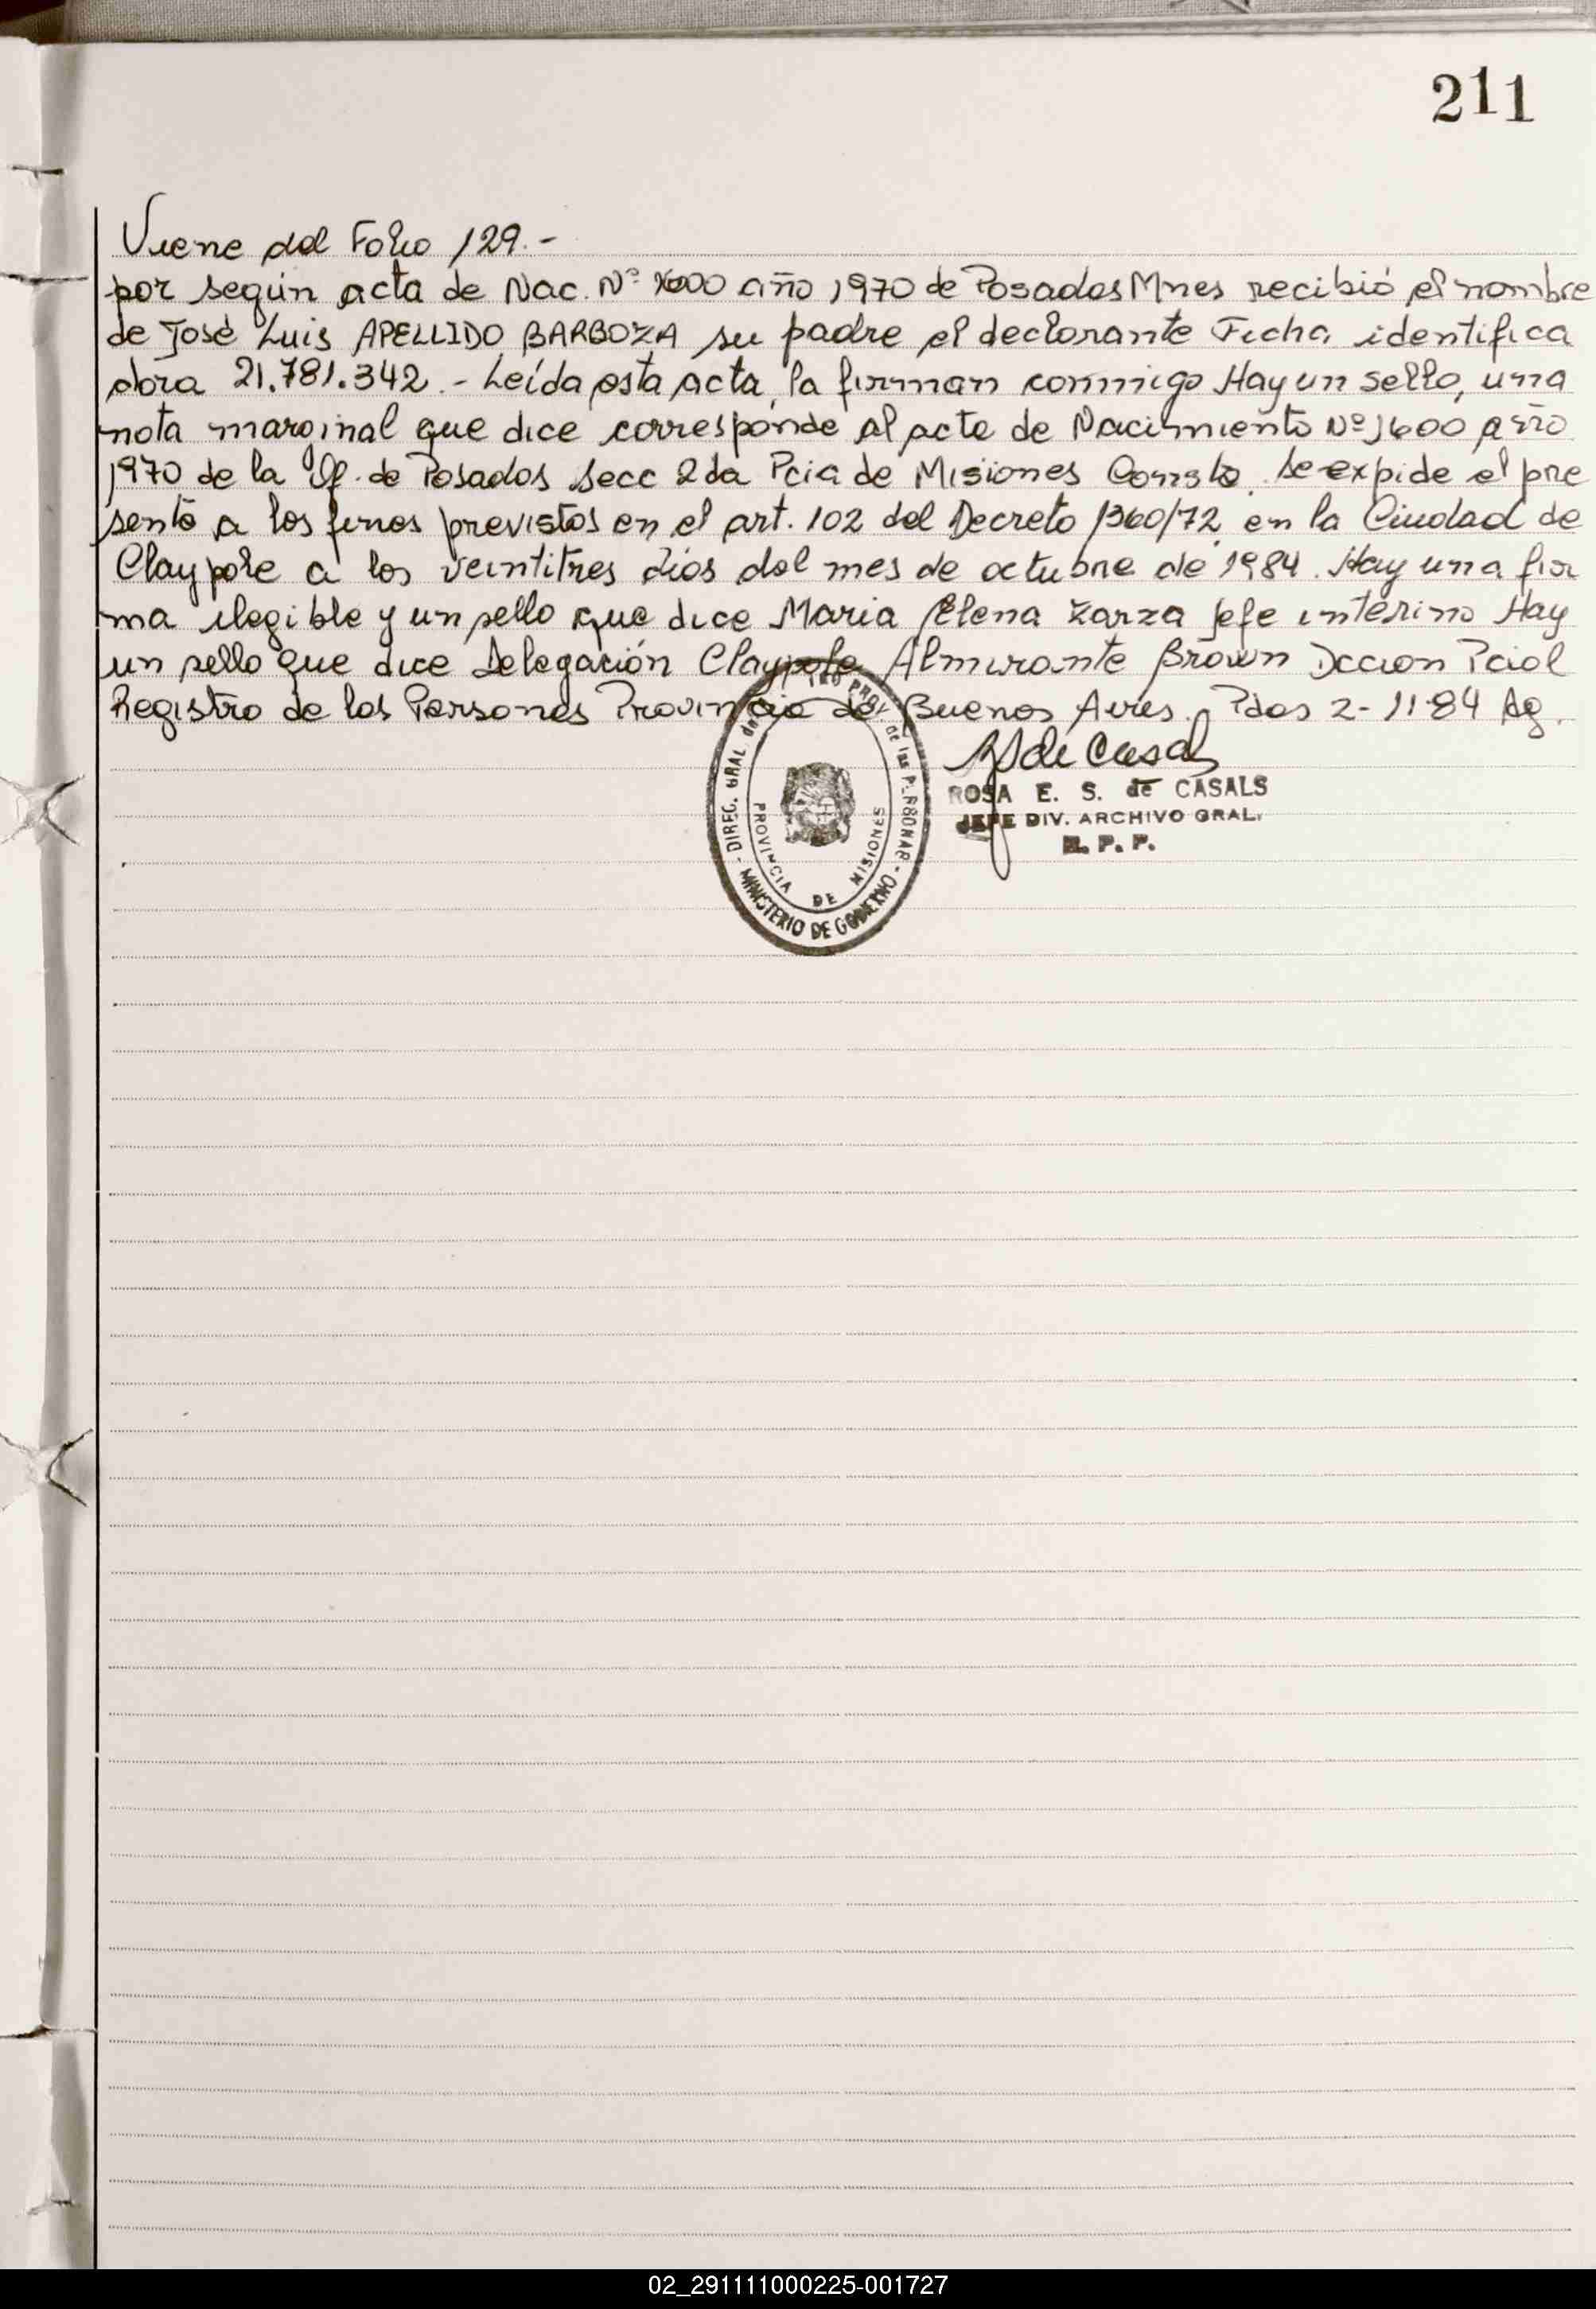 211
Viene del Folio 129.-
por según acta de Nac. Nº 1600 año 1970 de Posadas Mnes recibió el nombre
de José Luis APELLIDO BARBOZA su padre el declarante Ficha identifica
dora 21.781.342.- Leída esta acta, la firman conmigo Hay un sello, una
nota marginal que dice corresponde al acta de Nacimiento Nº 1600 año
1970 de la Of. de Posadas Secc 2da Pcia de Misiones Consta. Se expide el pre
sente a los fines previstos en el art. 102 del Decreto 1360/72, en la Ciudad de
Claypole a los veintitres dias del mes de octubre de 1984. Hay una fir
ma ilegible y un sello que dice Maria Elena Zarza Jefe interino Hay
un sello que dice Delegación Claypole Almirante Brown Dccion Pcial
Registro de las Personas Provincia de Buenos Aires. Pdas 2-11-84 Ag.
ROSA E. S. de CASALS
JEFE DIV. ARCHIVO GRAL.
R. P. P.
DIREC. GRAL de PROV. de las PERSONAS
MINISTERIO DE GOBIERNO
PROVINCIA DE MISIONES
02_291111000225-001727